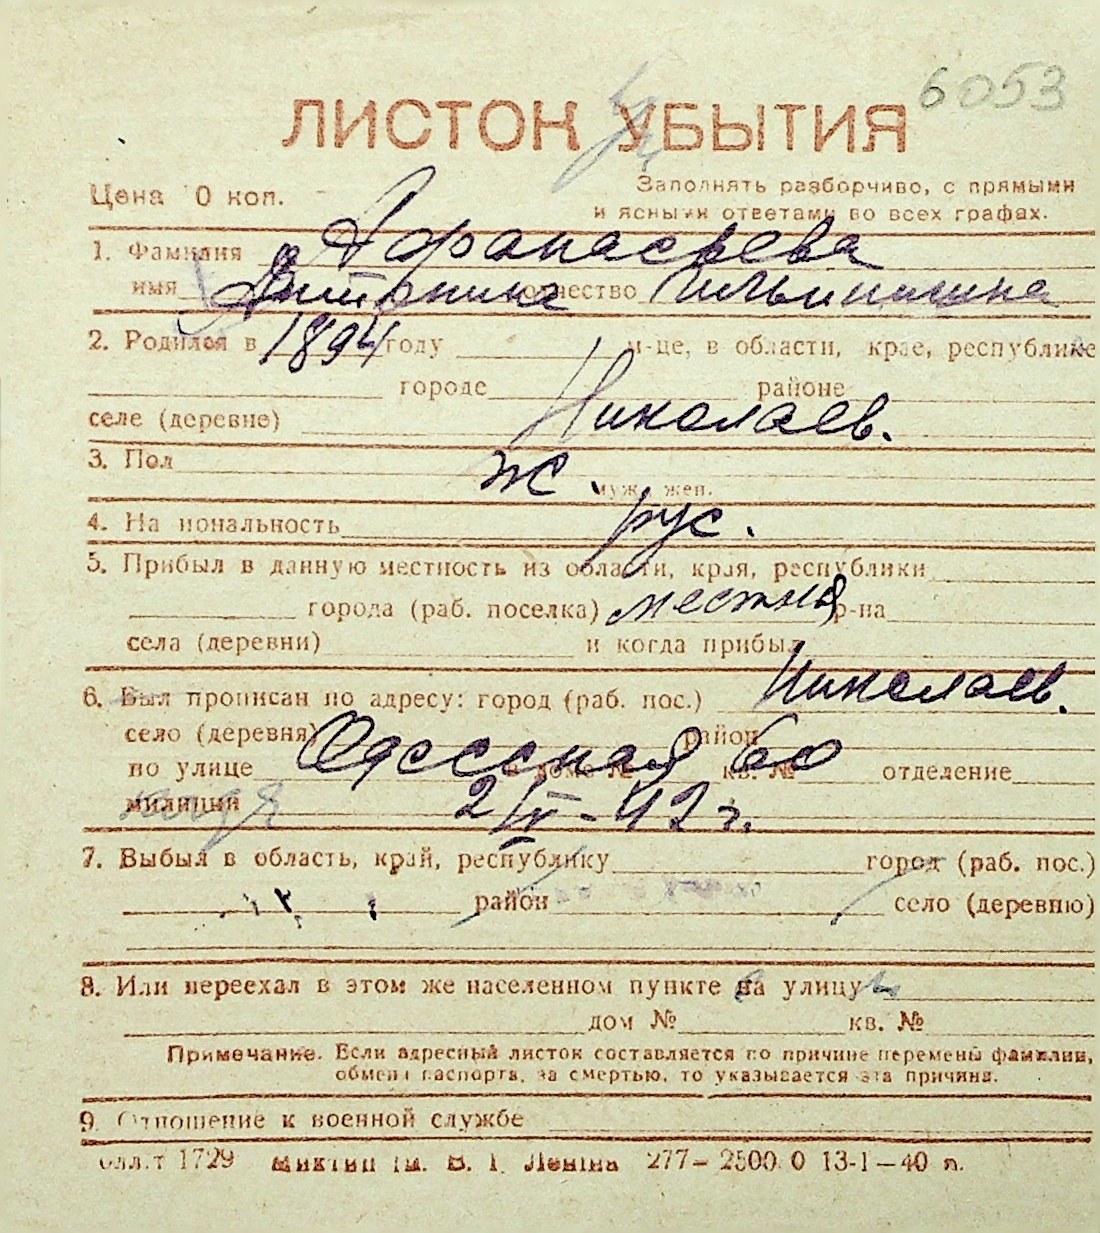 6053
ЛИСТОК УБЫТИЯ
Цена 10 коп.
Заполнять разборчиво, с прямыми
и ясными ответами во всех графах.
1. Фамилия Афанасьева
имя отчество Ильинишна
2. Родился в 1894 году м-це, в области, крае, республике
городе районе
селе (деревне) Николаев.
3. Пол ж. муж. жен.
4. Национальность рус.
5. Прибыл в данную местность из области, края, республики
города (раб. поселка) местная р-на
села (деревни) и когда прибыл
6. Был прописан по адресу: город (раб. пос.) Николаев.
село (деревня) район
по улице Одесская 60 в доме № кв. № отделение
милиции 2/IV-42 г.
7. Выбыл в область, край, республику город (раб. пос.)
район село (деревню)
8. Или переехал в этом же населенном пункте на улицу
дом № кв. №
Примечание. Если адресный листок составляется по причине перемены фамилии,
обмена паспорта, за смертью, то указывается эта причина.
9. Отношение к военной службе
1729 Ленина 277—25000 13-I—40 п.